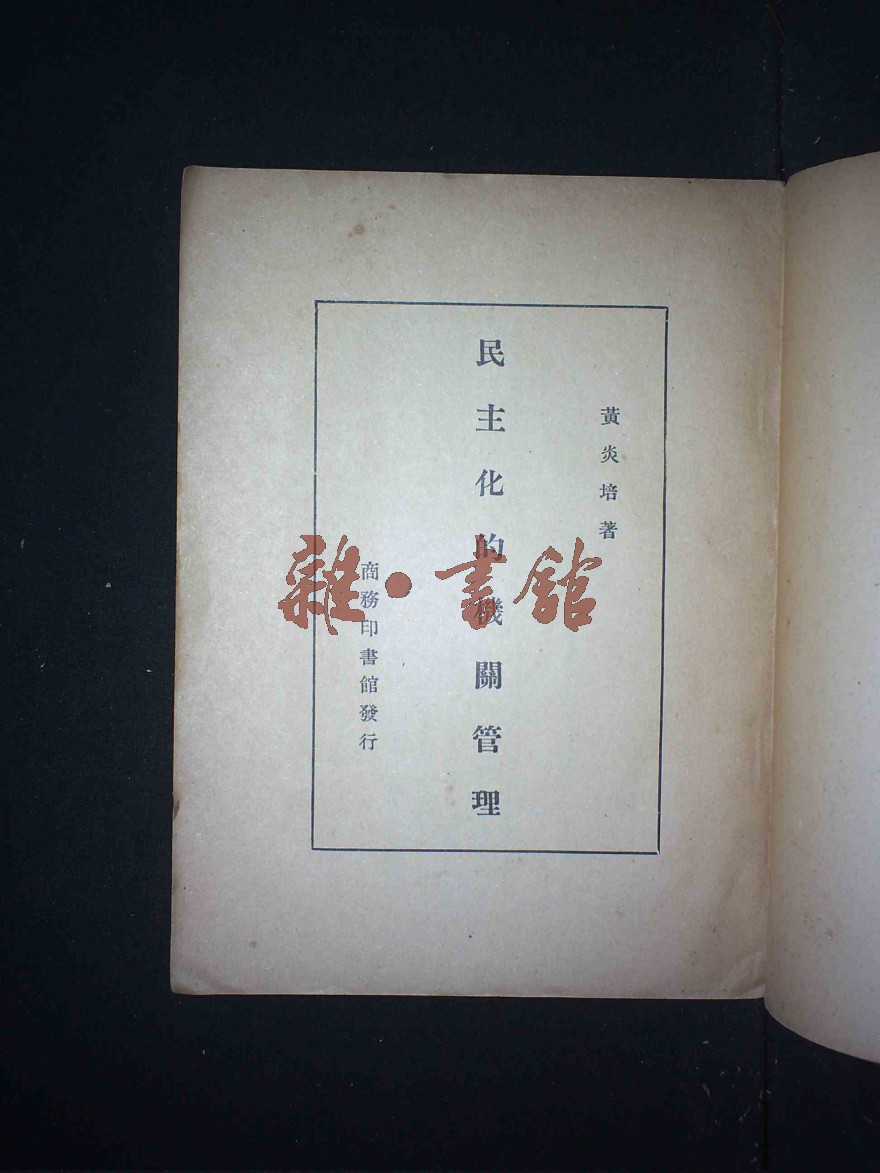 黃炎培著
民主化的機關管理
商務印書館發行
雜·書館